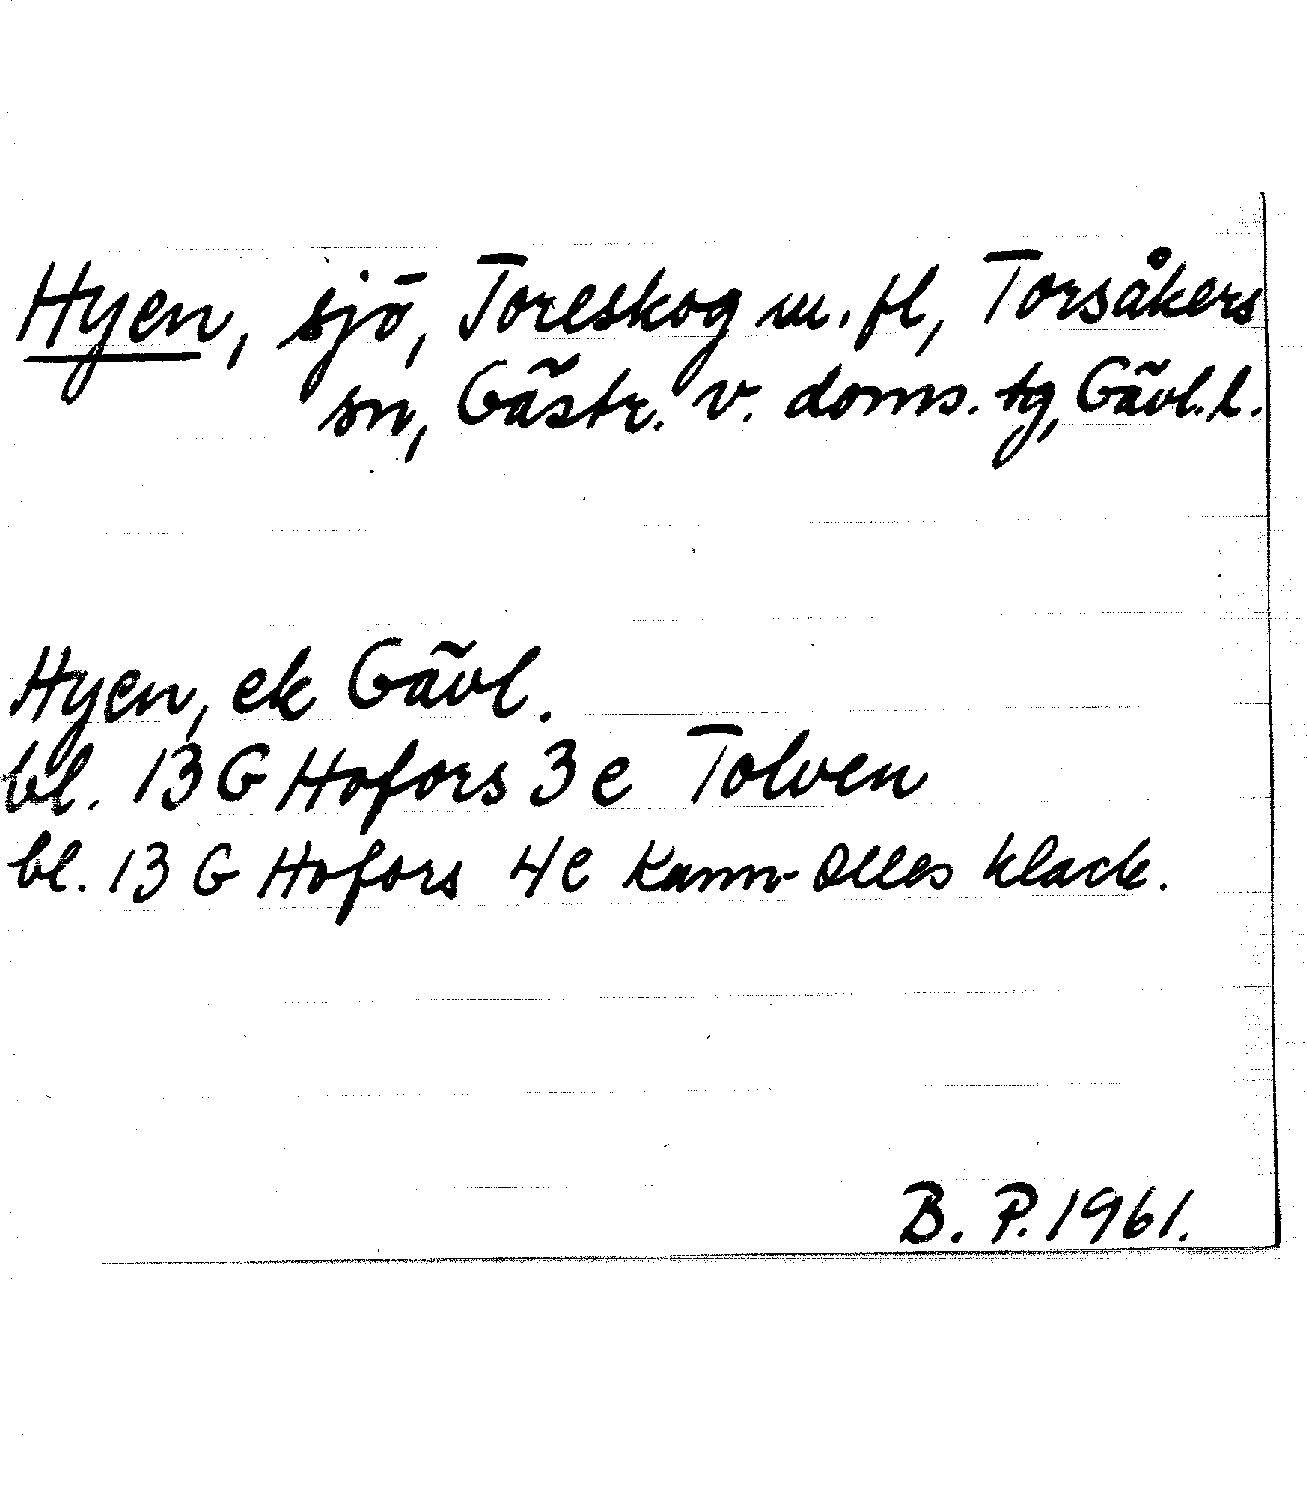 Hyen, sjö, Toreskog m.fl, Torsåkers
sn, Gästr. v. doms. tg, Gävl.l.
Hyen, ek Gävl.
bl. 13 G Hofors 3 e Tolven
bl. 13 G Hofors 4 e Kann-Olles klack.
B. P. 1961.